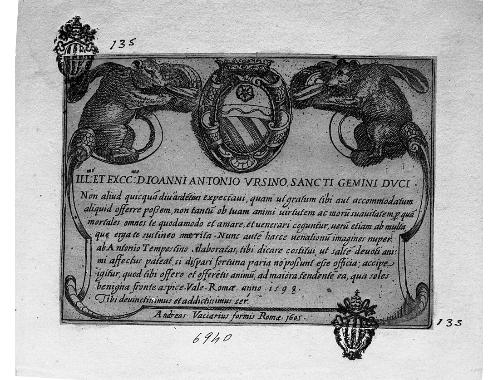 135
ILL. ET EXCC. D. IOANNI ANTONIO VRSINO, SANCTI GEMINI DVCI.
Non aliud quicquã diu ardẽtius expectaui, quam ut gratum tibi aut accommodatum
aliquid offerre possem, non tantũ ob tuam animi uirtutem ac morũ suauitatem, p quã
mortales omnes te quodamodo et amare, et uenerari coguntur, uerũ etiam ob multa
que erga te sustineo merita. Nunc autẽ hasce uenationũ imagines nuper
ab Antonio Tempestino elaboratas, tibi dicare constitui, ut saltẽ deuoti ani:
mi affectus pateat si dispari fortuna paria nõ possunt esse officia; accipe
igitur, quod tibi offero et offerẽtis animũ, ad maiora tendente ea, qua soles
benigna fronte aspice. Vale. Romæ anno 1598.
Tibi deuinctissimus et addictissimus ser.
Andreas Vaccarius formis Romæ 1605.
6940
135